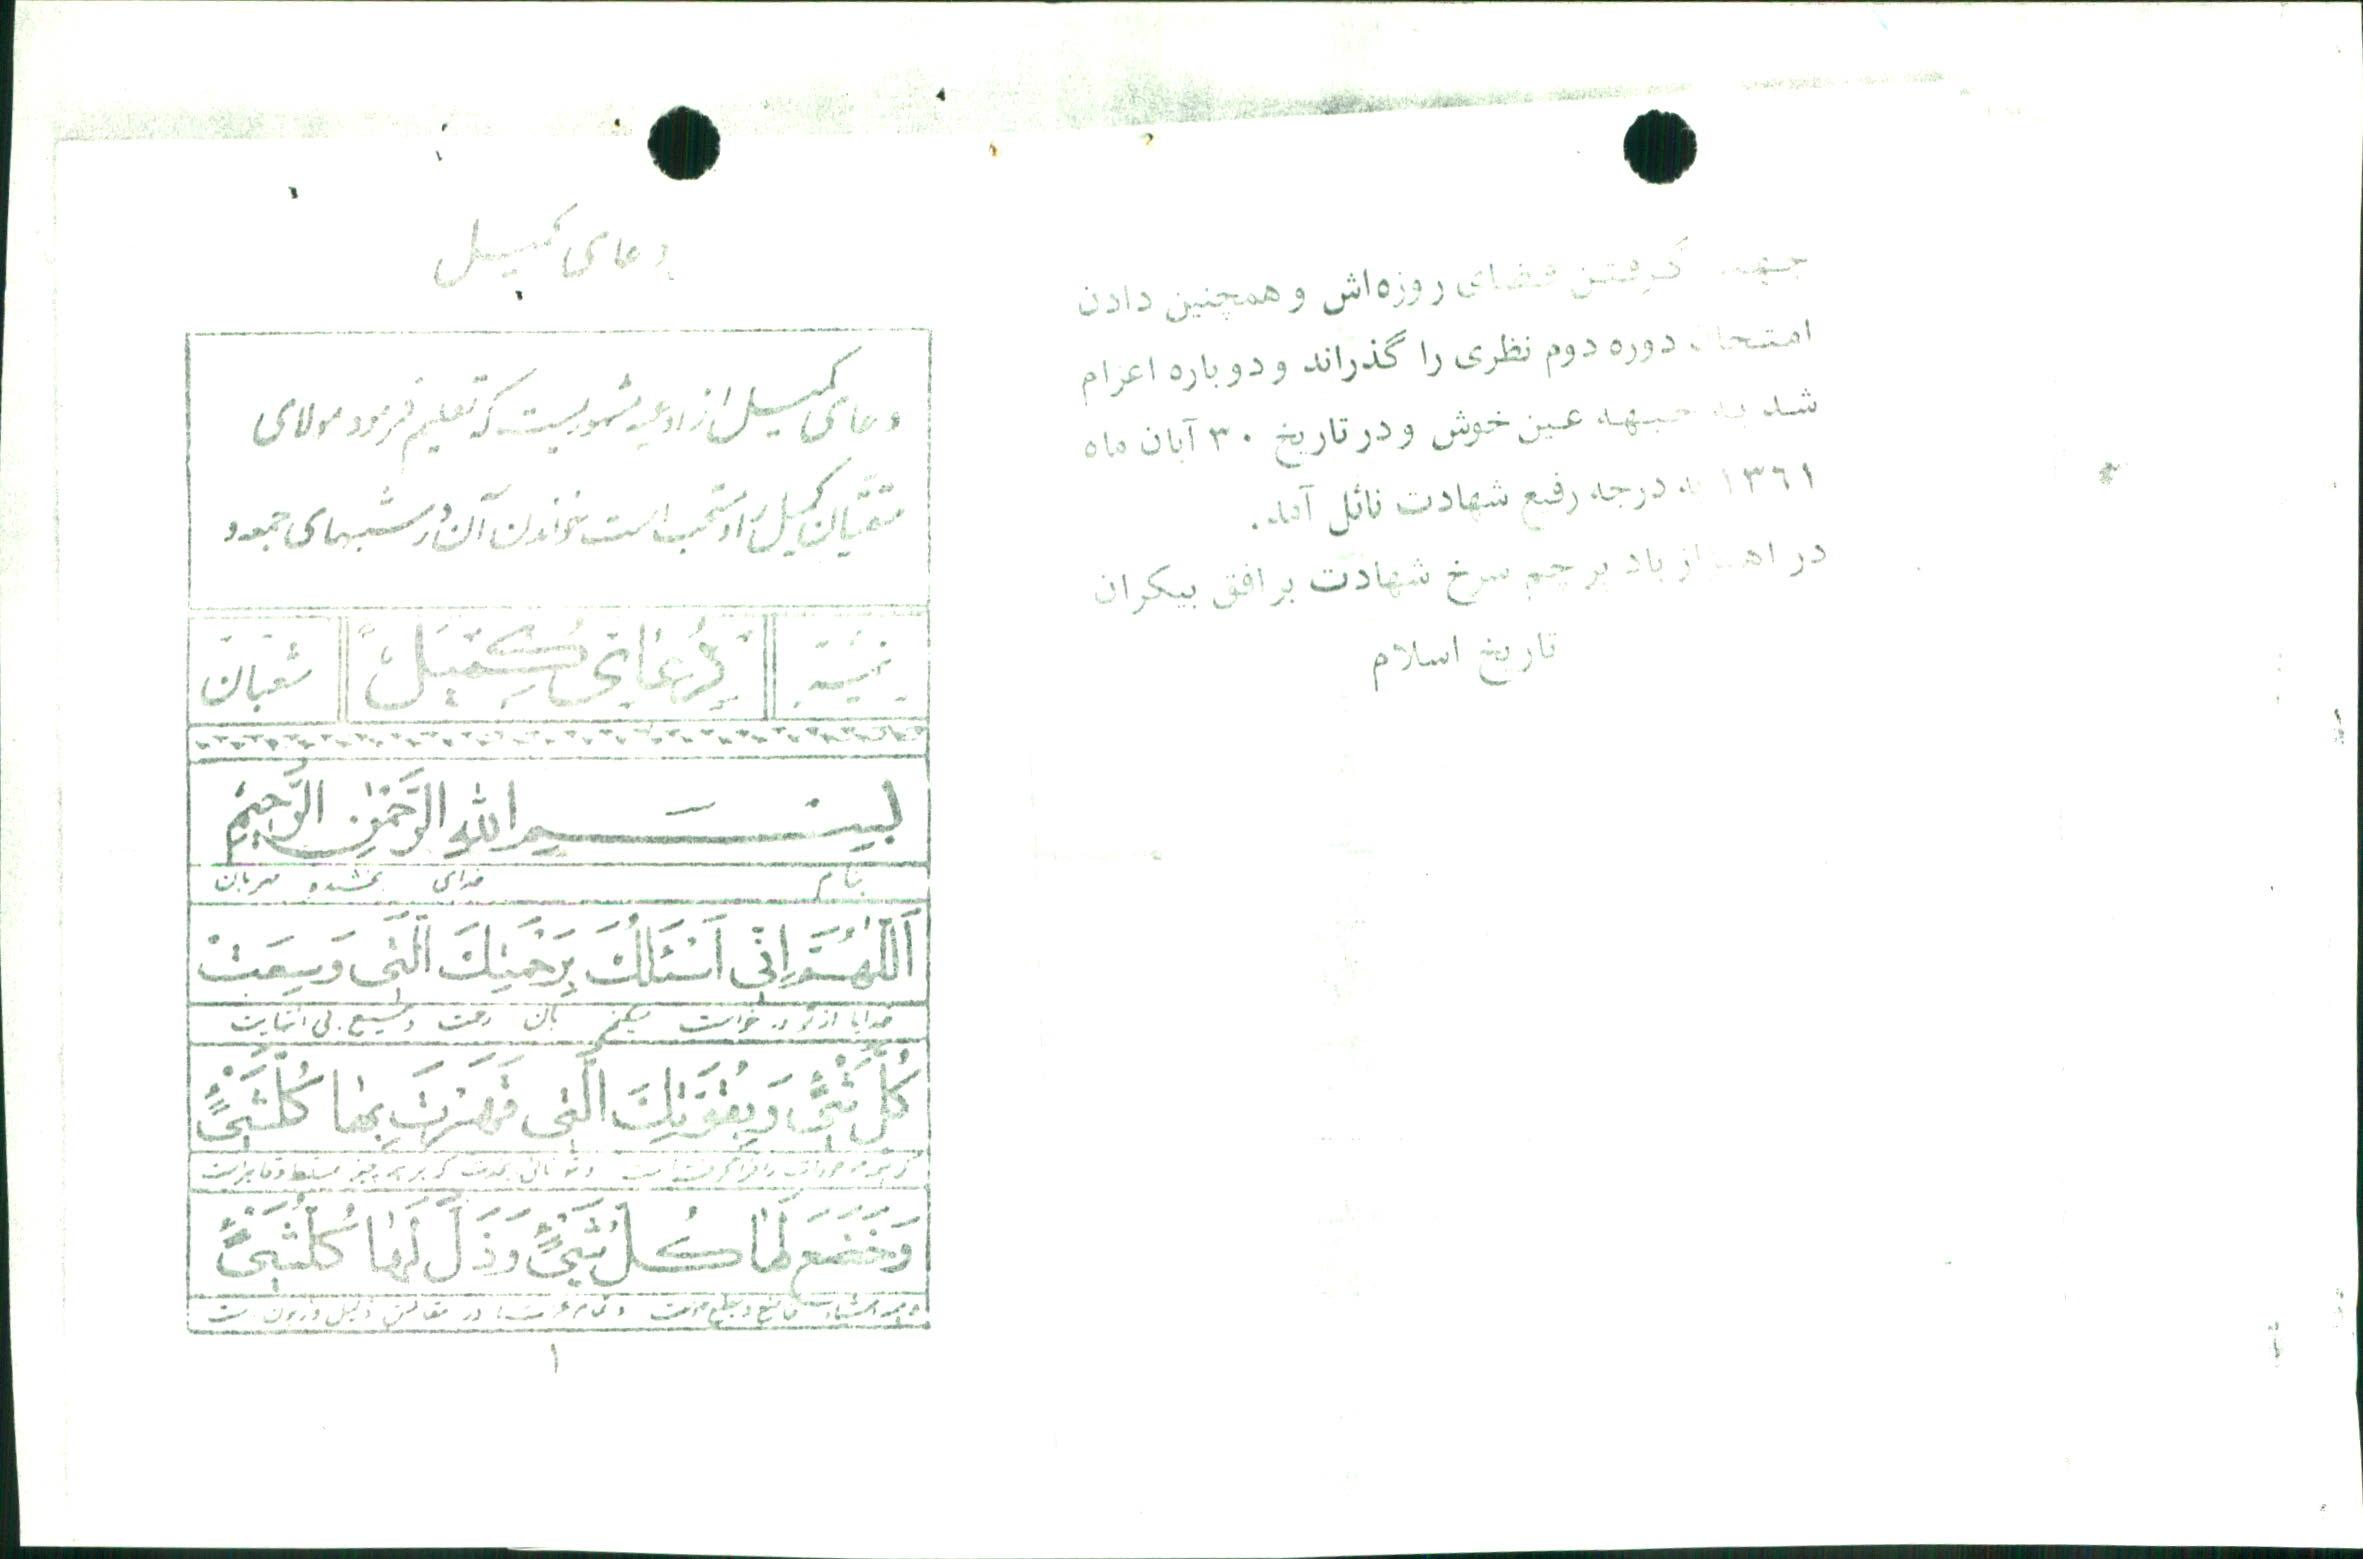 جهت گرفتن قضای روزه‌اش و همچنین دادن
امتحان دوره دوم نظری را گذراند و دوباره اعزام
شد به جبهه عین خوش و در تاریخ ۳۰ آبان ماه
۱۳٦۱ به درجه رفیع شهادت نائل آمد.
در اهتزاز باد پرچم سرخ شهادت بر افق بیکران
تاریخ اسلام
دعای کمیل
دعای کمیل از ادعیه مشهوریست که تعلیم فرمود مولای
متقیان کمیل را و مستحب است خواندن آن در شبهای جمعه و
نیمه
دُعای کُمَیل
شعبان
بِسْمِ اللهِ الرَّحْمٰنِ الرَّحیمِ
بنام خدای بخشنده مهربان
اَللّٰهُمَّ اِنّی اَسْئَلُکَ بِرَحْمَتِکَ الَّتی وَسِعَتْ
خدایا از تو درخواست میکنم بآن رحمت وسیع بی انتهایت
کُلَّ شَیْءٍ وَ بِقُوَّتِکَ الَّتی قَهَرْتَ بِهٰا کُلَّ شَیْءٍ
وَ خَضَعَ لَهٰا کُلُّ شَیْءٍ وَ ذَلَّ لَهٰا کُلُّ شَیْءٍ
۱